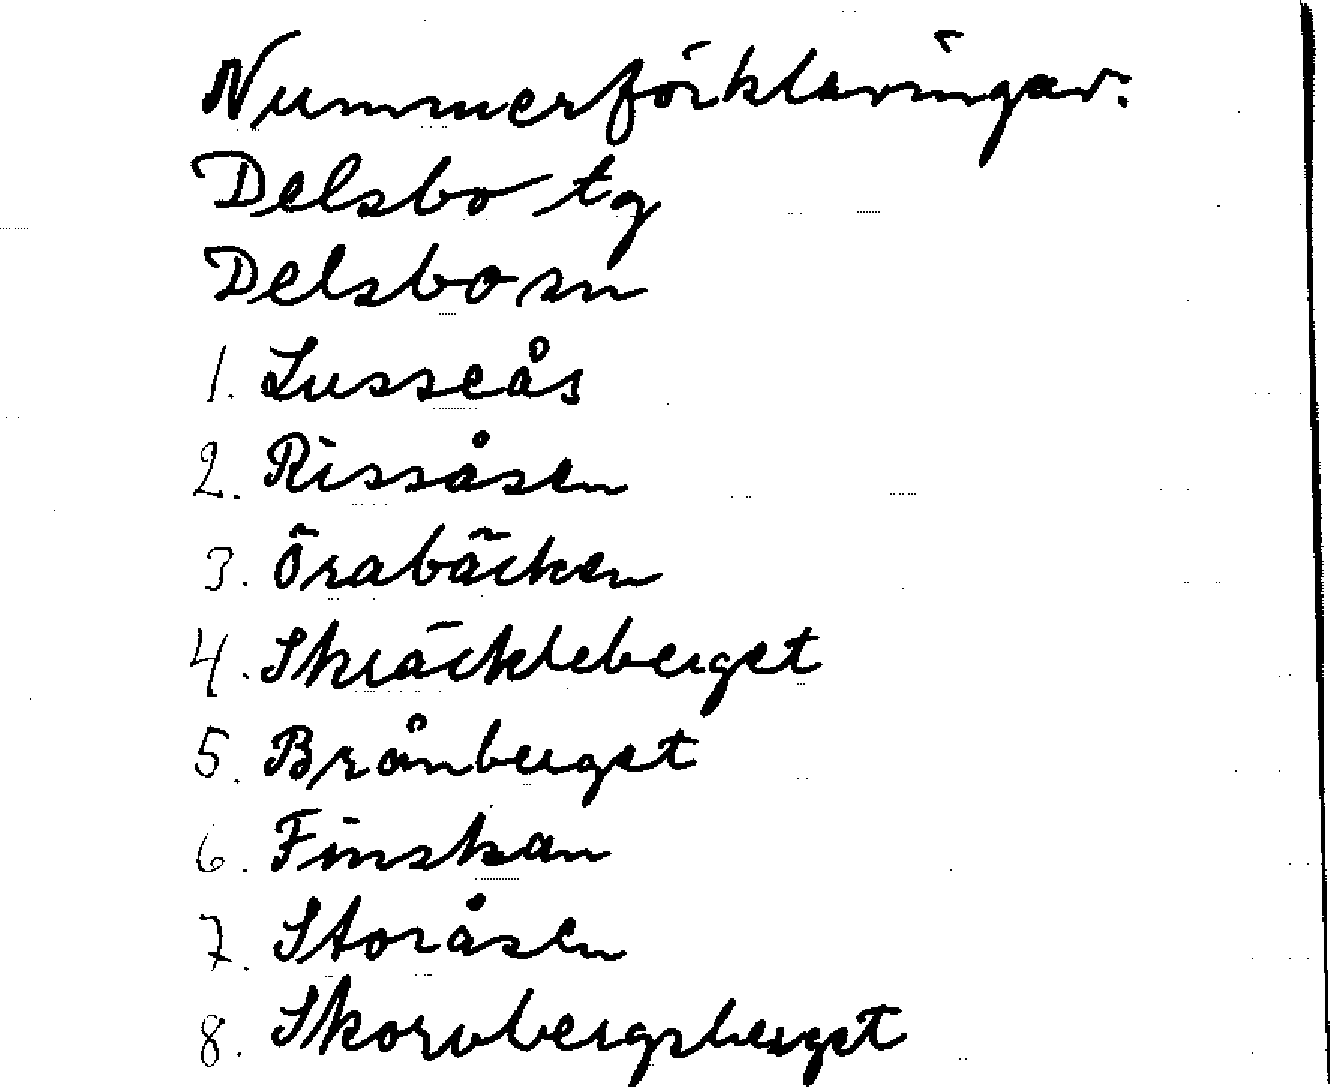 Nummerförklaringar:
Delsbo tg
Delsbo sn
1. Lusseås
2. Rissåsen
3. Örabäcken
4. Skräckleberget
5. Brånberget
6. Finskan
7. Storåsen
8. Skorvbergsberget